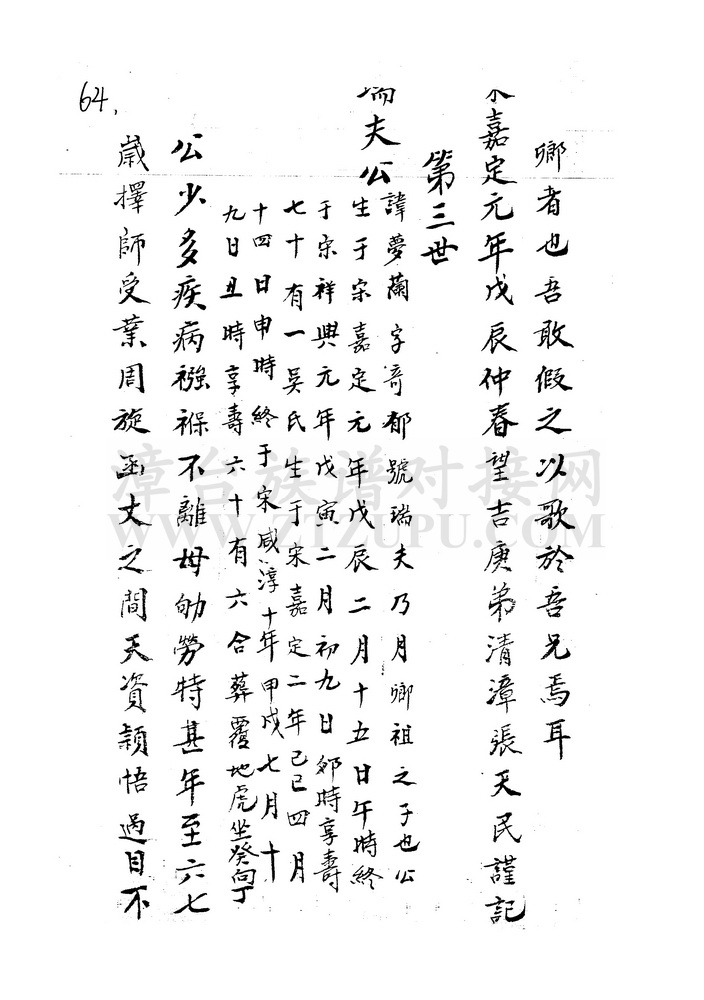 64.
卿者也吾敢假之以歌於吾兄焉耳
宋嘉定元年戊辰仲春望吉庚弟清漳張天民謹記
第三世
瑞夫公
諱夢蘭字奇郁號瑞夫乃月卿祖之子也公
生于宋嘉定元年戊辰二月十五日午時終
于宋祥興元年戊寅二月初九日卯時享壽
七十有一吳氏生于宋嘉定二年己巳四月
十四日申時終于宋咸淳十年甲戌七月十
九日丑時享壽六十有六合葬覆地虎坐癸向丁
公少多疾病襁褓不離母劬勞特甚年至六七
歲擇師受業周旋函丈之間天資穎悟過目不
漳台族谱对接网
WWW.ZTZUPU.COM